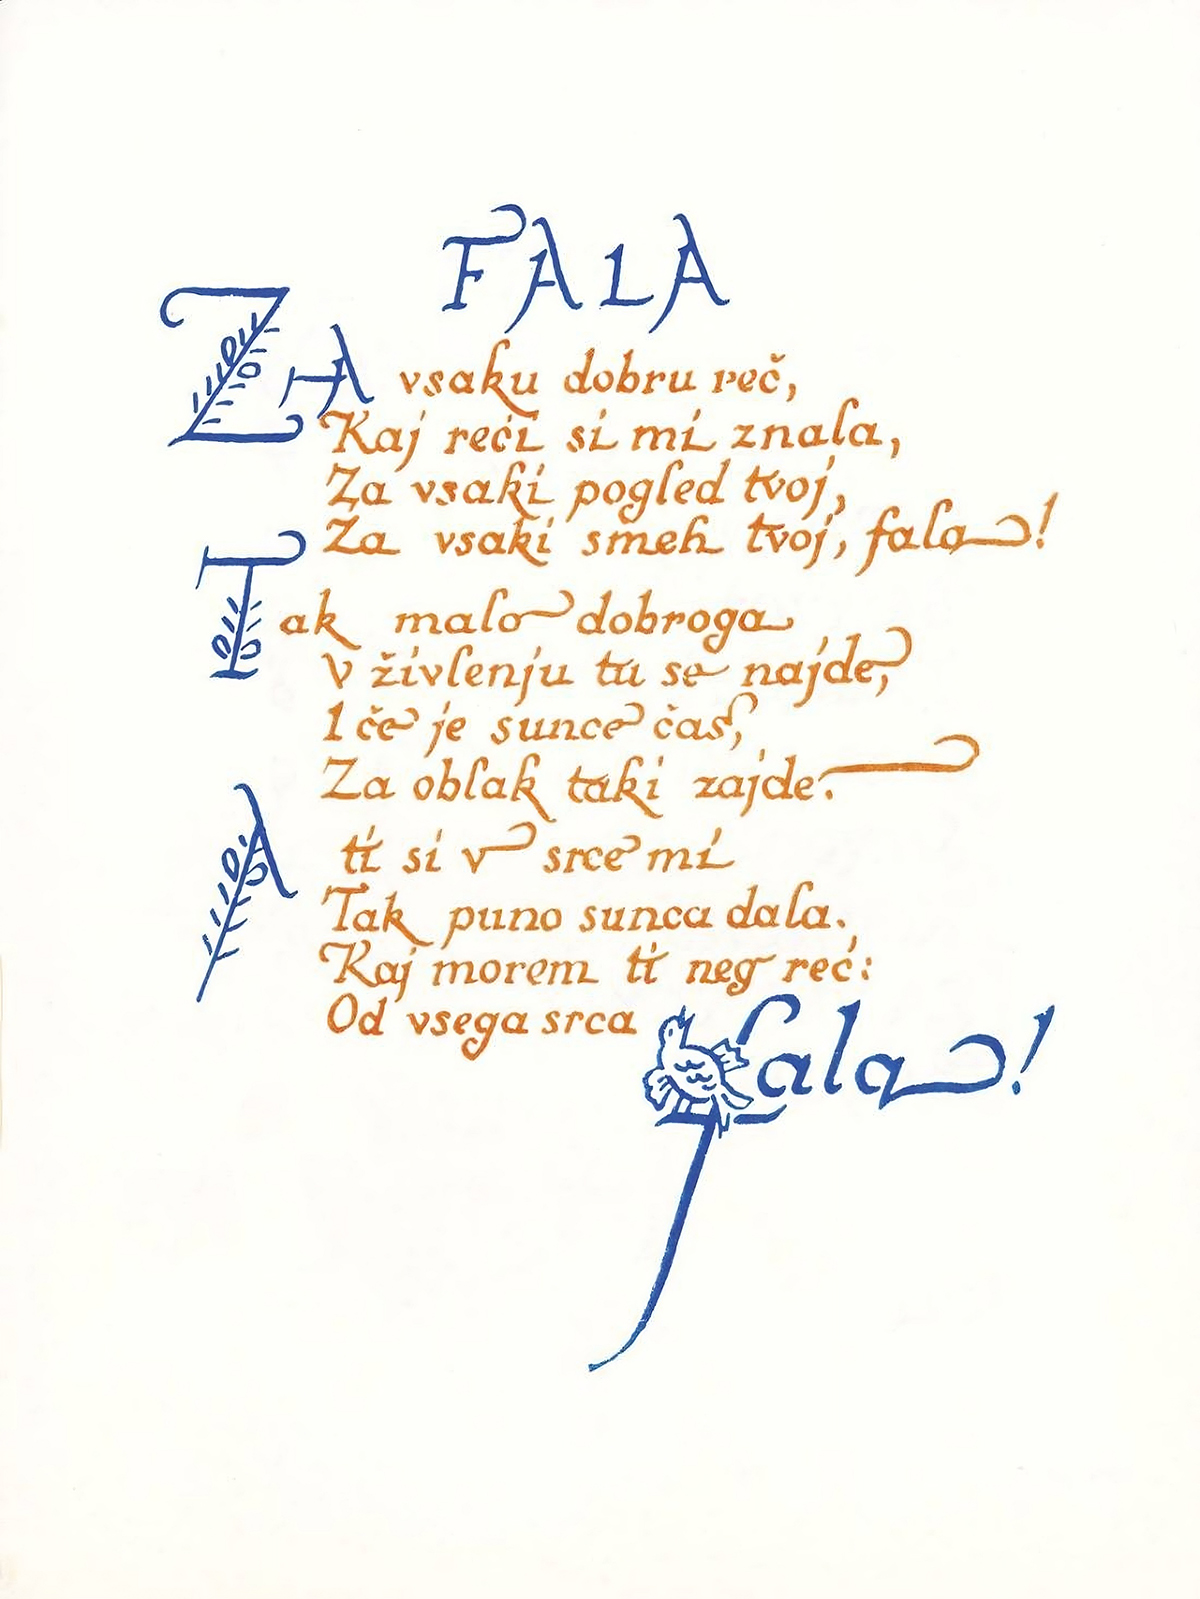 FALA
ZA vsaku dobru reč,
Kaj reći si mi znala,
Za vsaki pogled tvoj,
Za vsaki smeh tvoj, fala!
Tak malo dobroga
V živlenju tu se najde,
I če je sunce čas,
Za oblak taki zajde.
A ti si v srce mi
Tak puno sunca dala.
Kaj morem ti neg reć:
Od vsega srca
fala!